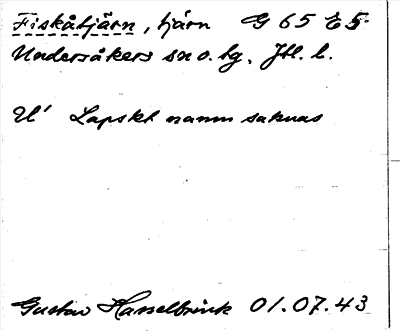 Fiskåtjärn, tjärn G 65 E 5.
Undersåkers sn o. tg. Jtl. l.
U' Lapskt namn saknas
Gustav Hasselbrink 01.07.43